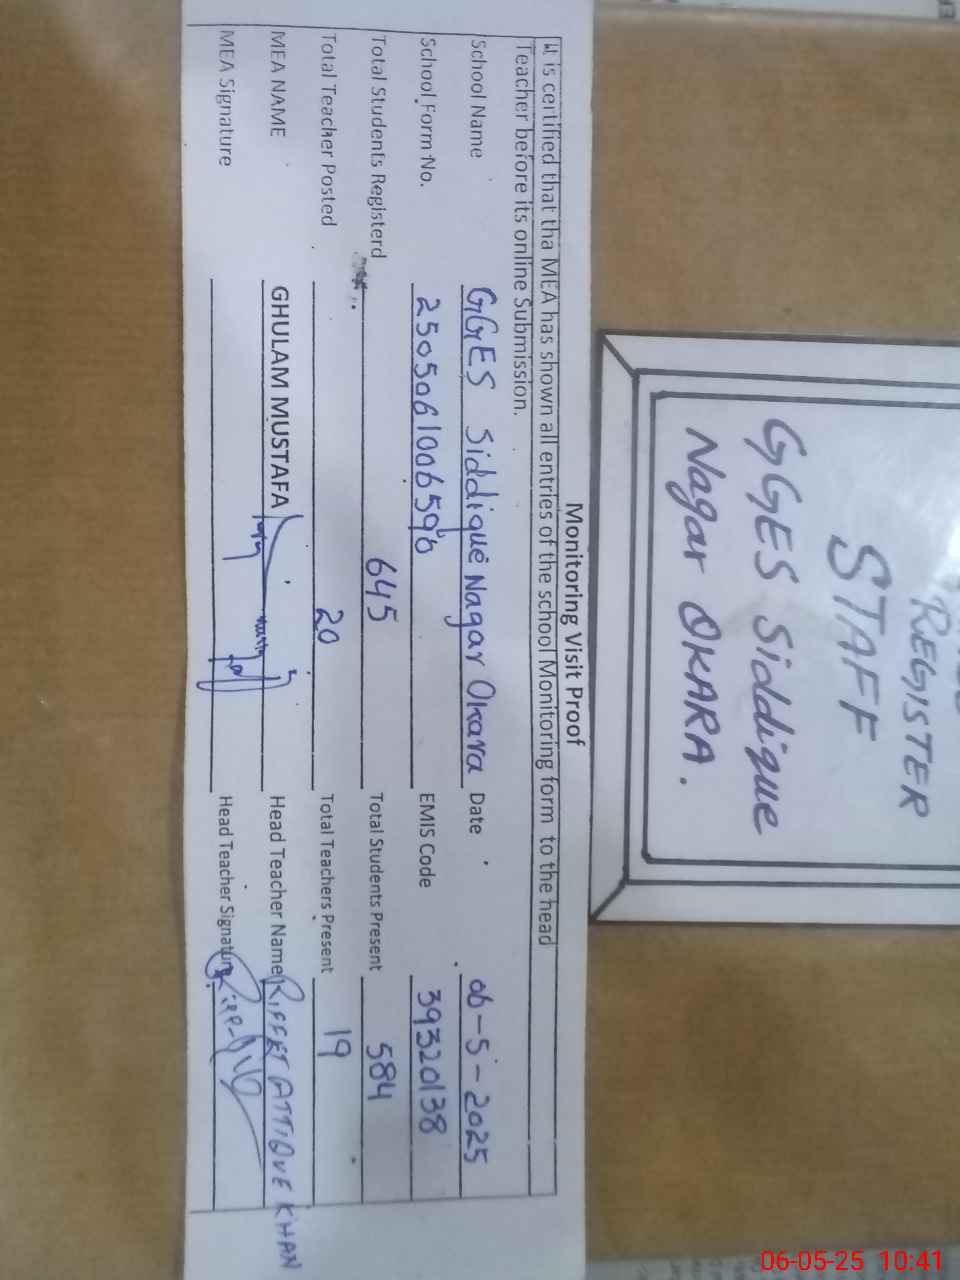 REGISTER
STAFF
GGES Siddique
Nagar OKARA.
Monitoring Visit Proof
It is certified that tha MEA has shown all entries of the school Monitoring form to the head
Teacher before its online Submission.
School Name GGES Siddique Nagar Okara Date 06-5-2025
School Form No. EMIS Code 39320138
Total Students Registerd 645 Total Students Present 584
Total Teacher Posted 20 Total Teachers Present 19
MEA NAME GHULAM MUSTAFA Head Teacher Name RIFFET ATTIQUE KHAN
MEA Signature Head Teacher Signature
06-05-25 10:41